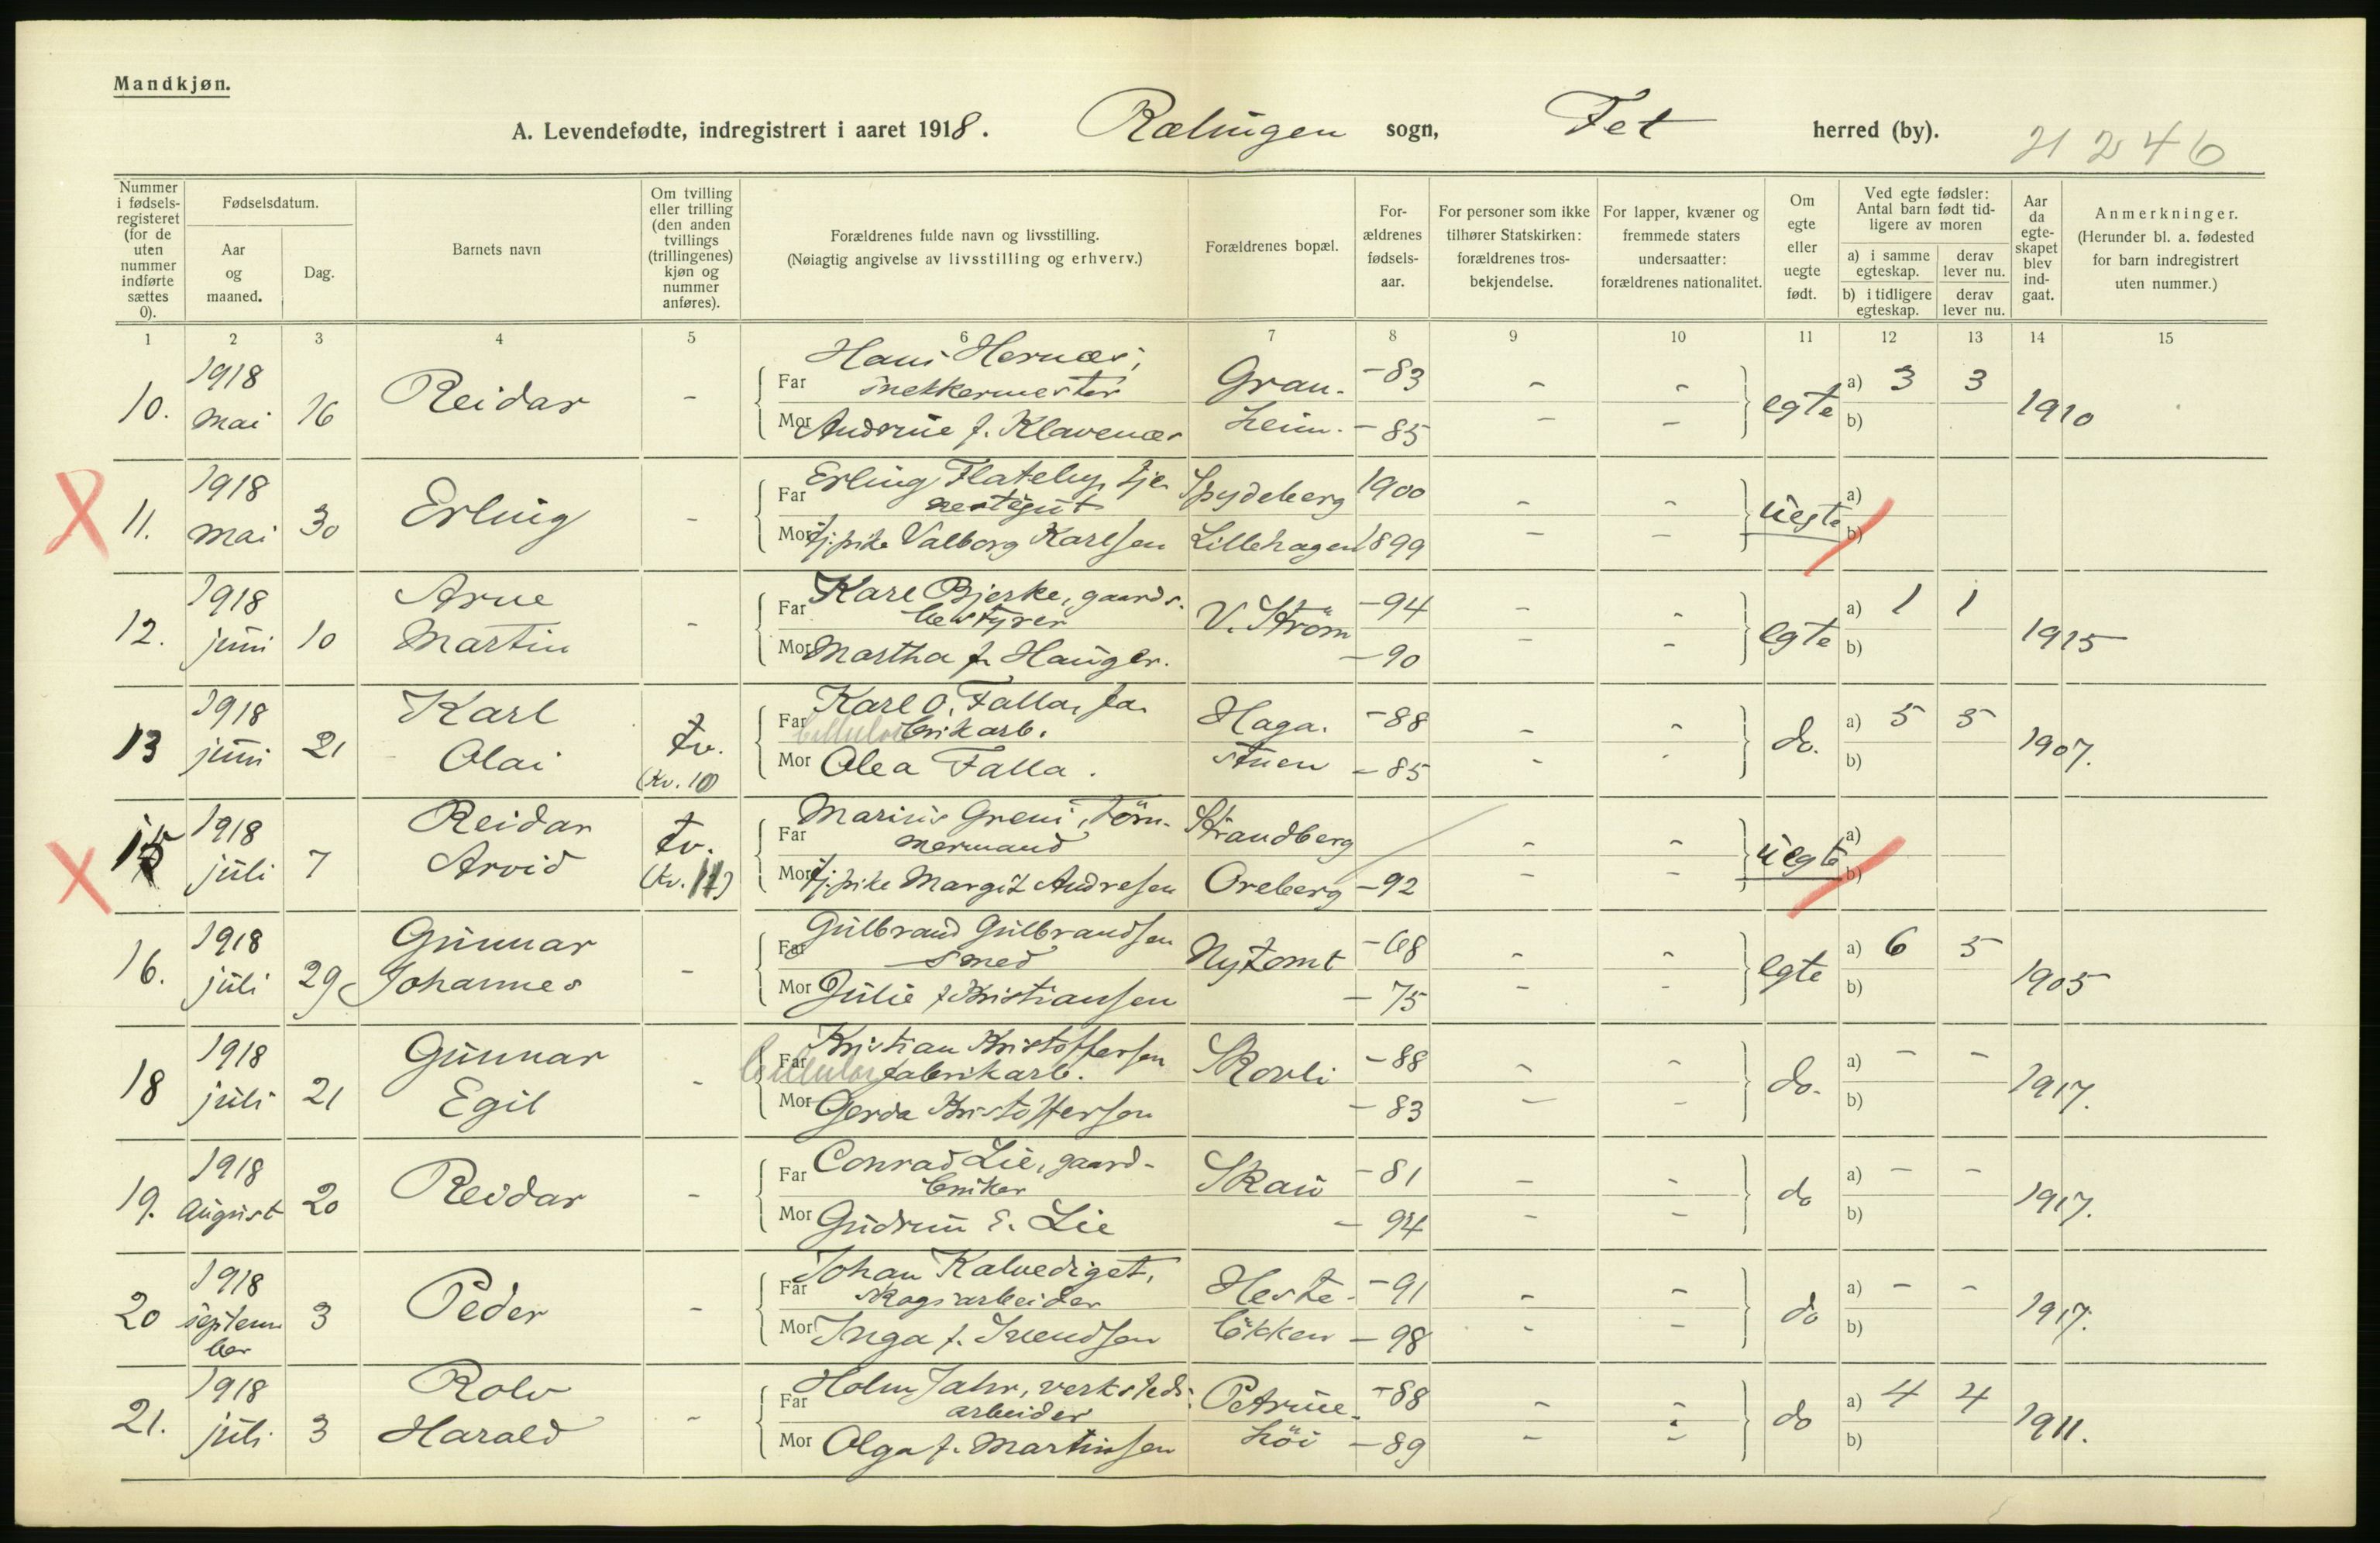 Mandkjøn.
A. Levendefødte, indregistrert i aaret 1918. Rælingen sogn, Fet herred (by). 21 246
Nummer i fødselsregisteret (for de uten nummer indførte sættes 0).
Fødselsdatum.
Aar og maaned.
Dag.
Barnets navn
Om tvilling eller trilling (den anden tvillings (trillingenes) kjøn og nummer anføres).
Forældrenes fulde navn og livsstilling.
(Nøiagtig angivelse av livsstilling og erhverv.)
Forældrenes bopæl.
For-ældrenes fødsels-aar.
For personer som ikke tilhører Statskirken: forældrenes tros-bekjendelse.
For lapper, kvæner og fremmede staters undersaatter: forældrenes nationalitet.
Om egte eller uegte født.
Ved egte fødsler: Antal barn født tid-ligere av moren
a) i samme egteskap.
derav lever nu.
b) i tidligere egteskap.
derav lever nu.
Aar da egte-skapet blev ind-gaat.
Anmerkninger.
(Herunder bl. a. fødested for barn indregistrert uten nummer.)
1 2 3 4 5 6 7 8 9 10 11 12 13 14 15
10. 1918 mai 16 Reidar - Far Hans Hernæs, snekkermester Gran- -83 - - egte a) 3 3 1910
Mor Andrine f. Klavenæs heim. -85 - - b)
11. 1918 mai 30 Erling - Far Erling Flateby, tje- nestegut Spydeberg 1900 - - uegte a)
Mor Tj.pike Valborg Karlsen Lillehagen 1899 - - b)
12. 1918 juni 10 Arne Martin - Far Kare Bjerke, gaards- bestyrer V. Strøm -94 - - egte a) 1 1 1915
Mor Martha f. Hauger. -90 - - b)
13 1918 juni 21 Karl Olai tv. (kv. 10) Far Karl O. Falla, fa- Cellulose brikarb. Haga- -88 - - do. a) 5 5 1907.
Mor Olea Falla. stuen -85 - - b)
15 1918 juli 7 Reidar Arvid tv. (kv. 11) Far Marius Greni, tøm- mermand Strandberg - - uegte a)
Mor Tj.pike Margit Andresen Oreberg -92 - - b)
16. 1918 juli 29 Gunnar Johannes - Far Gulbrand Gulbrandsen smed Nytomt -68 - - egte a) 6 5 1905
Mor Julie f. Kristiansen -75 - - b)
18 1918 juli 21 Gunnar Egil - Far Kristian Kristoffersen Cellulose fabrikarb. Skovli -88 - - do. a) - - 1917.
Mor Gerda Kristoffersen -83 - - b)
19. 1918 August 20 Reidar - Far Conrad Lie, gaard- bruker Skau -81 - - do a) - - 1917.
Mor Gudrun E. Lie -94 - - b)
20 1918 septem ber 3 Peder - Far Johan Kalvediget, skogsarbeider Heste- -91 - - do a) - - 1917.
Mor Inga f. Svendsen løkken -98 - - b)
21. 1918 juli 3 Rolv Harald - Far Holm Jahr, verksteds- arbeider Petrine- -88 - - do a) 4 4 1911.
Mor Olga f. Martinsen høi -89 - - b)